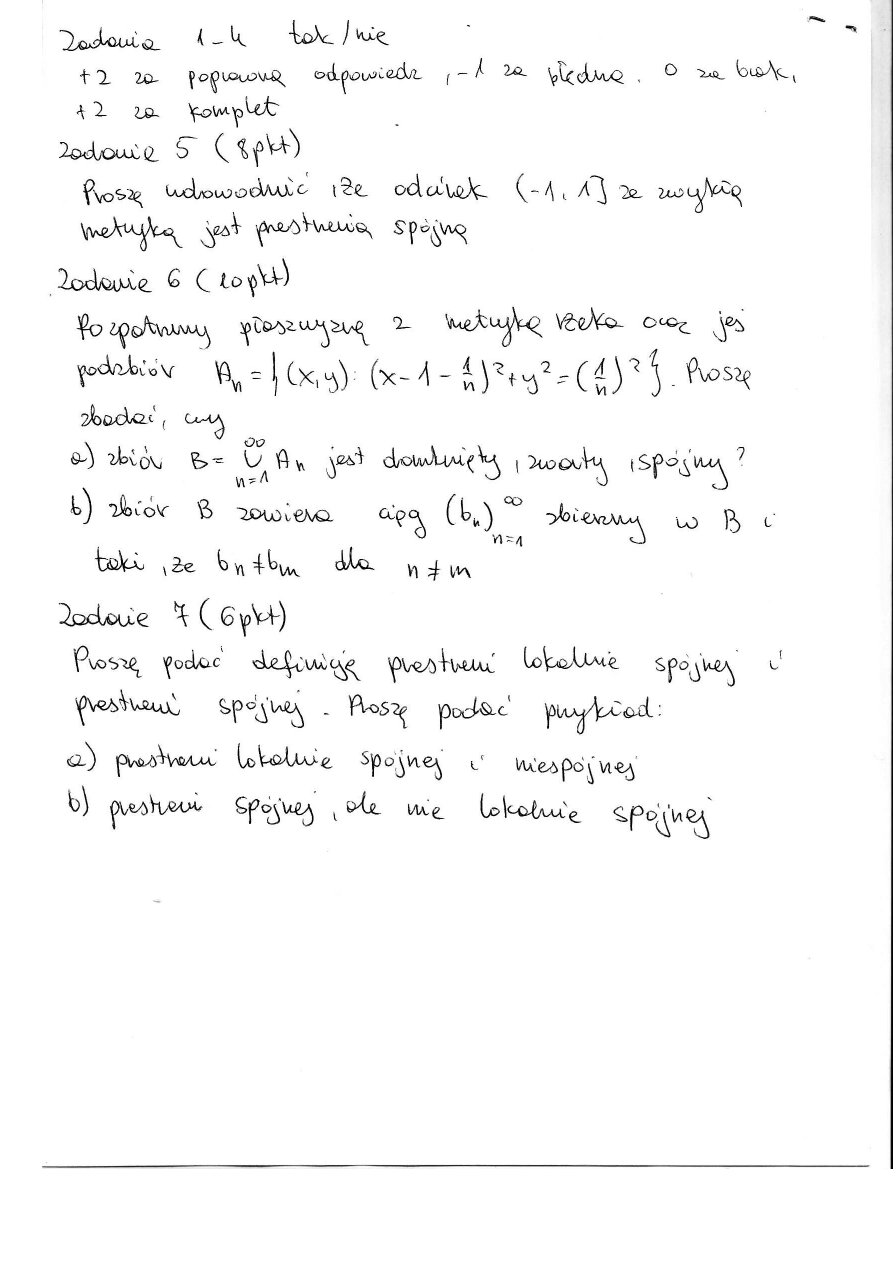 Zadania 1-4 tak/nie
+2 za poprawną odpowiedź, -1 za błędną. 0 za brak,
+2 za komplet
Zadanie 5 (8pkt)
Proszę udowodnić, że odcinek (-1, 1] ze zwykłą
metryką jest przestrzenią spójną
Zadanie 6 (10pkt)
Rozpatrzmy płaszczyznę z metryką rzeka oraz jej
podzbiór A_n = {(x,y): (x-1-1/n)²+y²=(1/n)²}. Proszę
zbadać, czy
a) zbiór B = ∞∪n=1 A_n jest domknięty, zwarty, spójny?
b) zbiór B zawiera ciąg (b_n)∞n=1 zbieżny w B i
taki, że b_n ≠ b_m dla n ≠ m
Zadanie 7 (6pkt)
Proszę podać definicję przestrzeni lokalnie spójnej i
przestrzeni spójnej. Proszę podać przykład:
a) przestrzeni lokalnie spójnej i niespójnej
b) przestrzeni spójnej, ale nie lokalnie spójnej